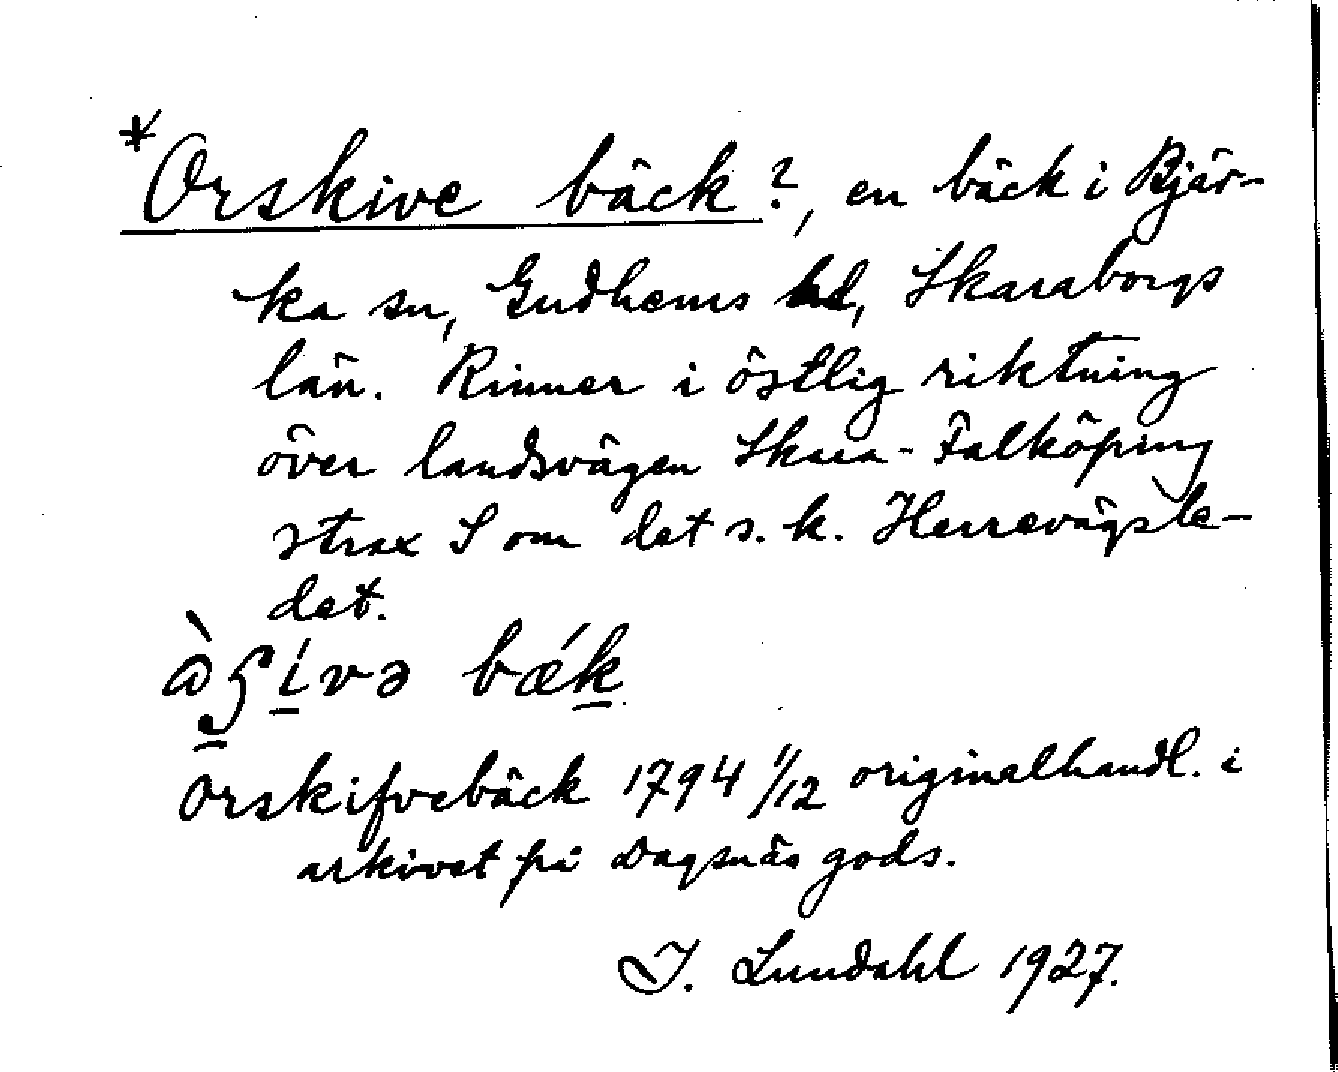 *Orskive bäck?, en bäck i Bjär-
ka sn, Gudhems hd, Skaraborgs
län. Rinner i östlig riktning
över landsvägen Skara-Falköping
strax S om det s.k. Herrevägsle-
det.
bǽk
Orskifvebäck 1794 1/12 originalhandl. i
arkivet på Dagsnäs gods.
I. Lundahl 1927.